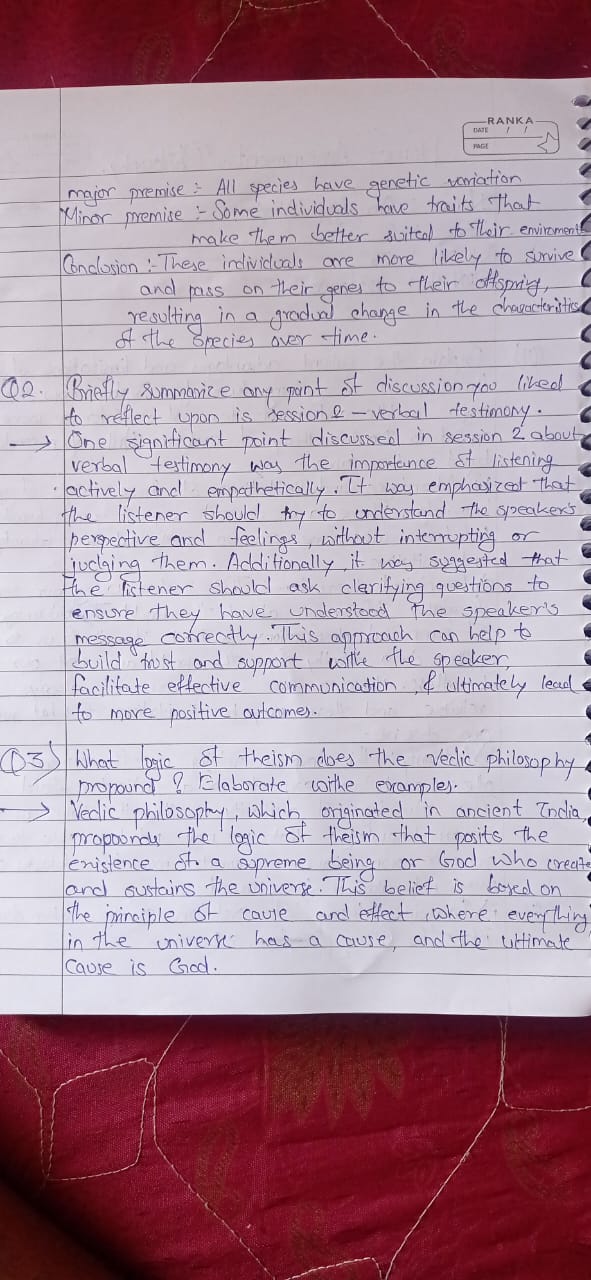 RANKA
DATE / /
PAGE
major premise :- All species have genetic variation
Minor premise :- Some individuals have traits that
make them better suited to their enviroment
Conclusion :- These individuals are more likely to survive
and pass on their genes to their offspring,
resulting in a gradual change in the characteristics
of the species over time.
Q2. Briefly summarize any point of discussion you liked
to reflect upon is session 2 - verbal testimony.
→ One significant point discussed in session 2 about
verbal testimony was the importance of listening
actively and empathetically. It was emphasized that
the listener should try to understand the speaker's
perspective and feelings, without interrupting or
judging them. Additionally, it was suggested that
the listener should ask clarifying questions to
ensure they have understood the speaker's
message correctly. This approach can help to
build trust and support withe the speaker,
facilitate effective communication, & ultimately lead
to more positive outcomes.
Q3) What logic of theism does the Vedic philosophy
propound? Elaborate withe examples.
→ Vedic philosophy, which originated in ancient India,
propounds the logic of theism that posits the
existence of a supreme being or God who create
and sustains the universe. This belief is based on
the principle of cause and effect, where everything
in the universe has a cause, and the ultimate
cause is God.